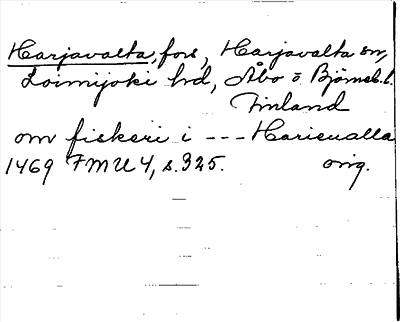 Harjavalta, fors, Harjavalta sn,
Loimijoki hd, Åbo o. Björneb. l.
Finland
om fiskeri i --- Harieualla
1469 FMU 4, s. 325. orig.